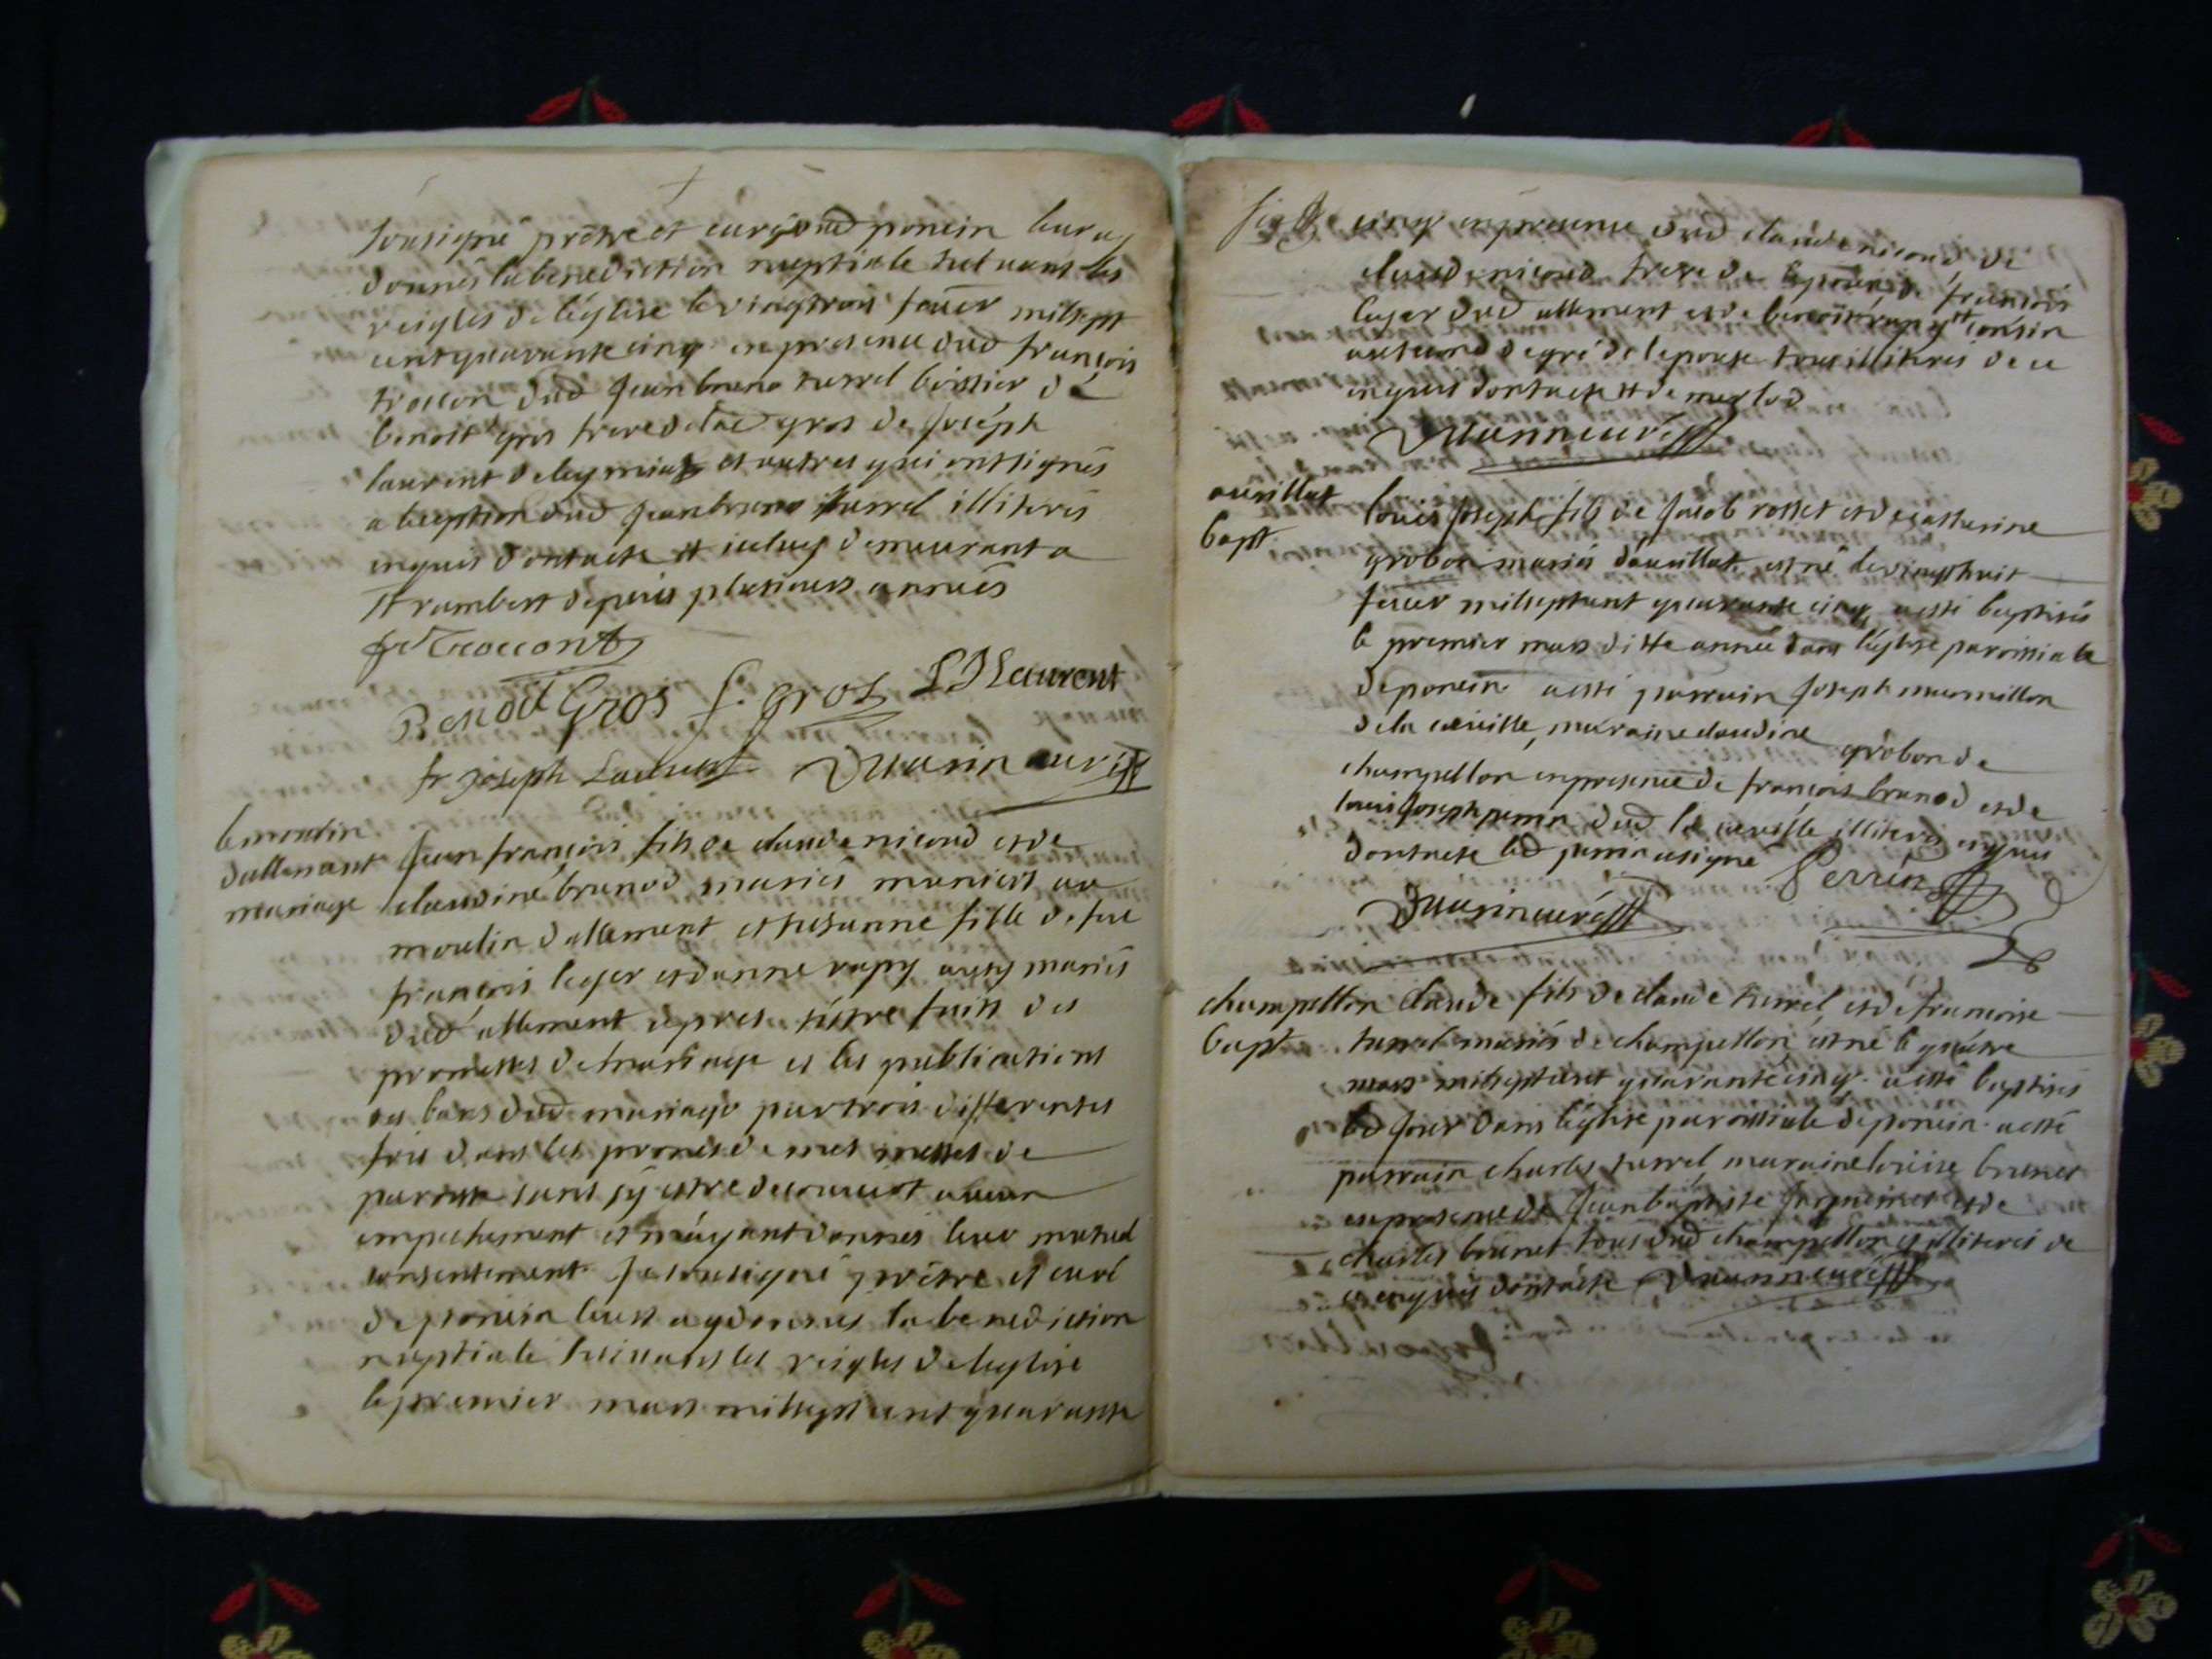 sousigné prêtre et curé dud poncin leur ay
donnés la benediction nuptiale suivant les
reigles de l'églese le vingtrois feuer milsept
cent quarante cinq en presence dud françois
troccon dud Jean bruno turrel boissier de
benoit gros frere de lad gros de joseph
laurent de leymiat et autres qui ont signés
a leception dud Jean bruno turrel illiterés
enquis dontacte et iceluy demeurant a
St rambert depuis plusieurs années
Troccont
Benoit Gros f. gros L J Laurent
fr Joseph curé
le moulin
dallemant
mariage
Jean françois fils de claude nicoud et de
claudine brunod mariés muniers au
moulin d'allement et susanne fille de feu
françois leger et d'anne rapy aussy mariés
dud allement apres s'être faits des
promesses de mariage et les publications
des bans dud mariage par trois differentes
fois dans les prones de mes messes de
paroisse sans sy estre decouvert aucun
empechement et m'ayant donnés leur mutuel
consentement Je sousigné prêtre et curé
de poncin leurs ay donnés la benediction
nuptiale suivants les reigles de leglise
le premier mars milsept cent quarante
cinq en presence dud claude nicoud de
claude nicoud frere de l'epoux de françois
leger dud allement et de benoit rapy cousin
au second degré de lepouse tous illiterés de ce
enquis dontacte
curé
avrillat
bapt
louis joseph fils de Jacob rosset et de catherine
grobon mariés d'avrillat est né le vingthuit
feuer milseptcent quarante cinq a esté baptisés
le premier mars ditte année dans léglise paroissiale
de poncin a esté parrain Joseph marmillon
de la cueille, maraine claudine grobon de
champellon en presence de françois brunod et de
louis joseph perrin dud la cueille illiterés enquis
dontacte led perrin a signé Perrin
curé
champellon
bapt
Claude fils de claude turrel et de francoise
turrel mariés de champellon est né le quatre
mars milseptcent quarante cinq a esté baptisés
led jour dans léglise paroissiale de poncin a esté
parrain charles turrel maraine louise brunet
en presence de Jean baptiste et de
charles brunet tous dud champellon illiterés de
ce enquis dontacte curé